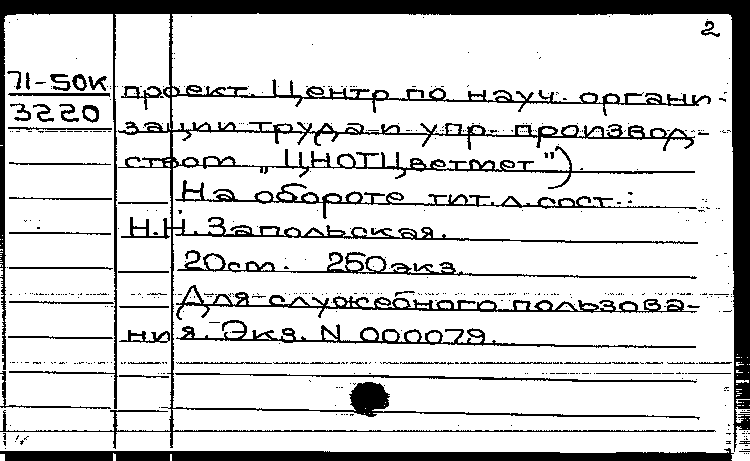 2
71-50К
3220
проект. Центр по науч. органи-
зации труда и упр. производ-
ством „ЦНОТЦветмет")
На обороте тит. л. сост.:
Н.Н. Запольская.
20см. 250экз.
Для служебного пользова-
ния. Экз. N 000079.